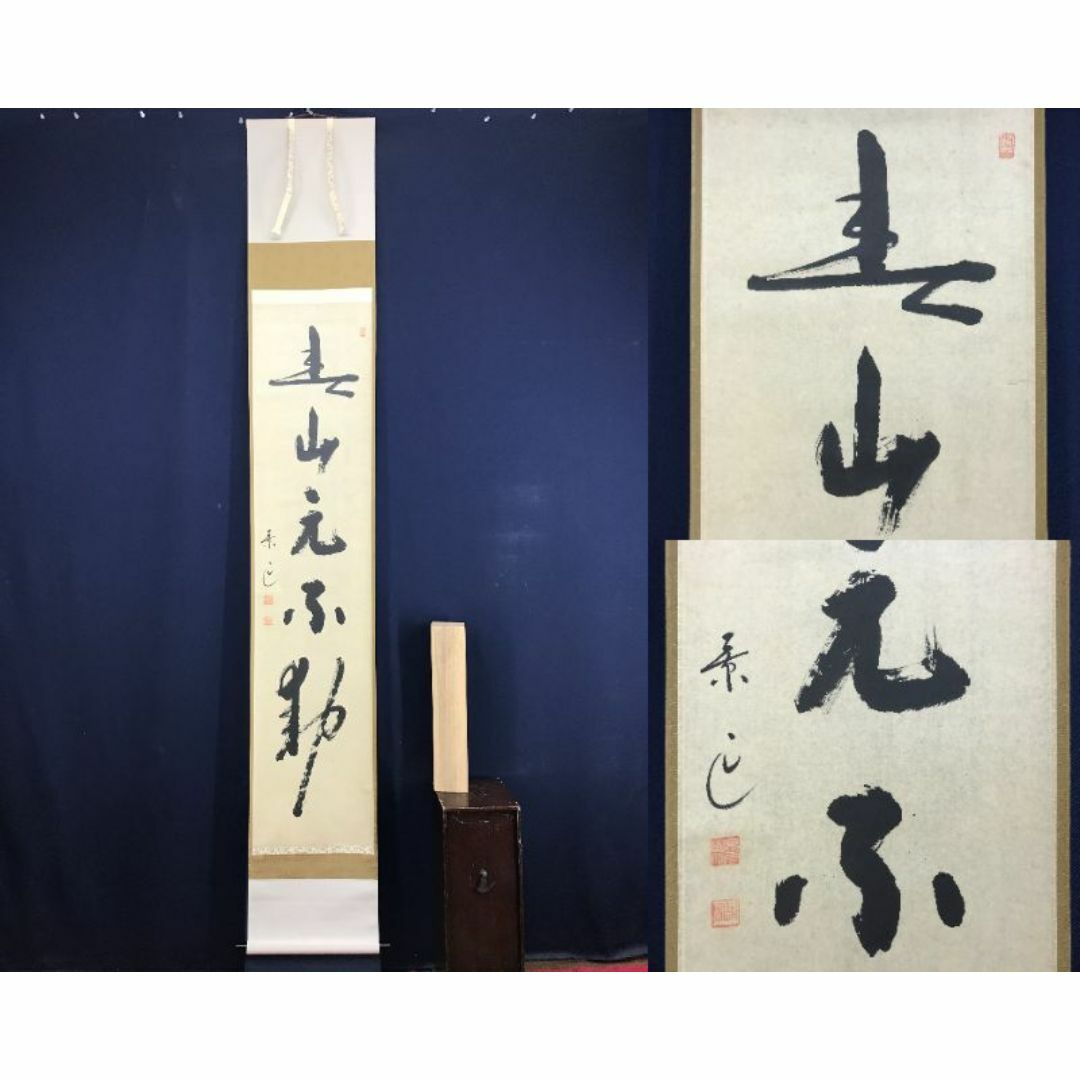 青山元不動
景
青山
元不
景